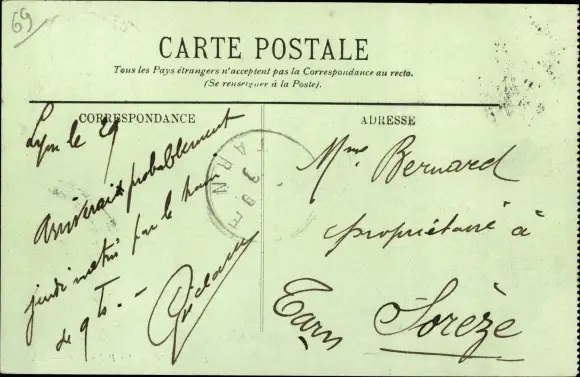 69
CARTE POSTALE
Tous les Pays étrangers n'acceptent pas la Correspondance au recto.
(Se renseigner à la Poste).
CORRESPONDANCE
Lyon le 29
arriverai probablement
jeudi matin par le train
de 9 h. -
ADRESSE
Mme Bernard
propriétaire à
Sorèze
Tarn
TARN